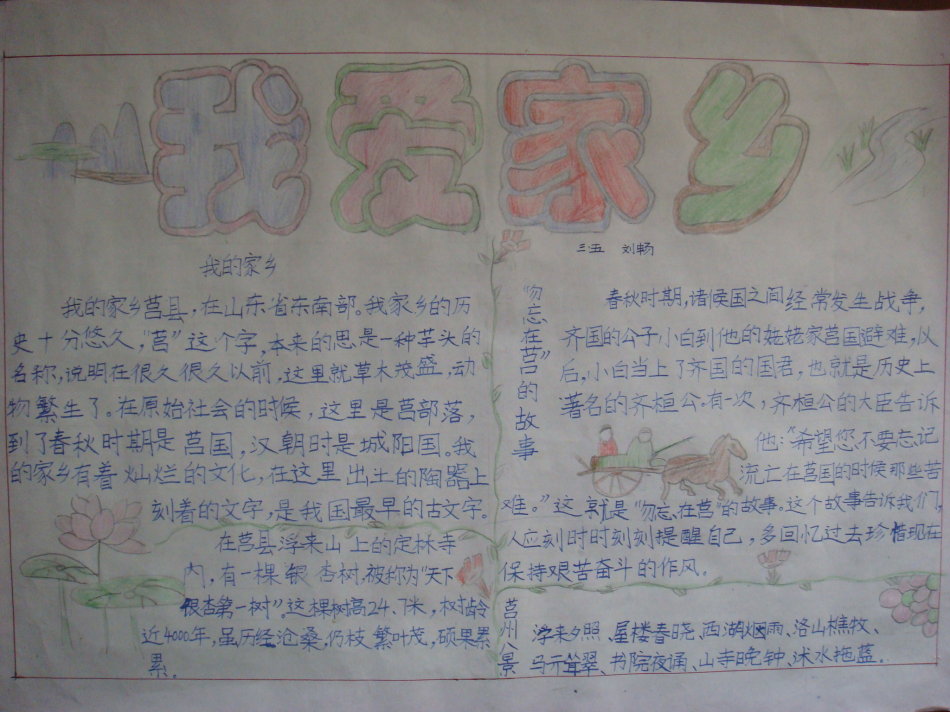 我爱家乡
三·五 刘畅
我的家乡
我的家乡莒县，在山东省东南部。我家乡的历
史十分悠久，“莒”这个字，本来的思是一种芋头的
名称，说明在很久很久以前，这里就草木茂盛，动
物繁生了。在原始社会的时候，这里是莒部落，
到了春秋时期是莒国，汉朝时是城阳国。我
的家乡有着灿烂的文化，在这里出土的陶器上
刻着的文字，是我国最早的古文字。
在莒县浮来山上的定林寺
内，有一棵银杏树，被称为“天下
银杏第一树”。这棵树高24.7米，树龄
近4000年，虽历经沧桑，仍枝繁叶茂，硕果累
累。
“勿忘在莒”的故事
春秋时期，诸候国之间经常发生战争，
齐国的公子小白到他的姥姥家莒国避难，以
后，小白当上了齐国的国君，也就是历史上
著名的齐桓公。有一次，齐桓公的大臣告诉
他：“希望您不要忘记
流亡在莒国的时候那些苦
难。”这就是“勿忘在莒”的故事。这个故事告诉我们，
人应刻时时刻刻提醒自己，多回忆过去珍惜现在
保持艰苦奋斗的作风。
莒州八景
浮来夕照、屋楼春晓、西湖烟雨、洛山樵牧、
马亓耸翠、书院夜诵、山寺晚钟、沭水拖蓝。